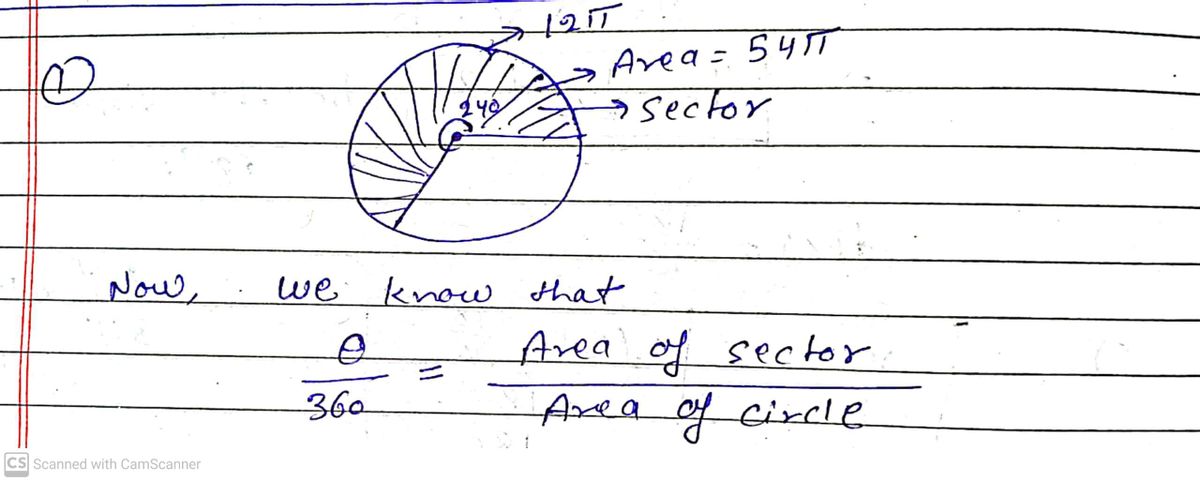 12π
① Area = 54π
240
sector
Now, we know that
θ/360 = Area of sector/Area of circle
CS Scanned with CamScanner